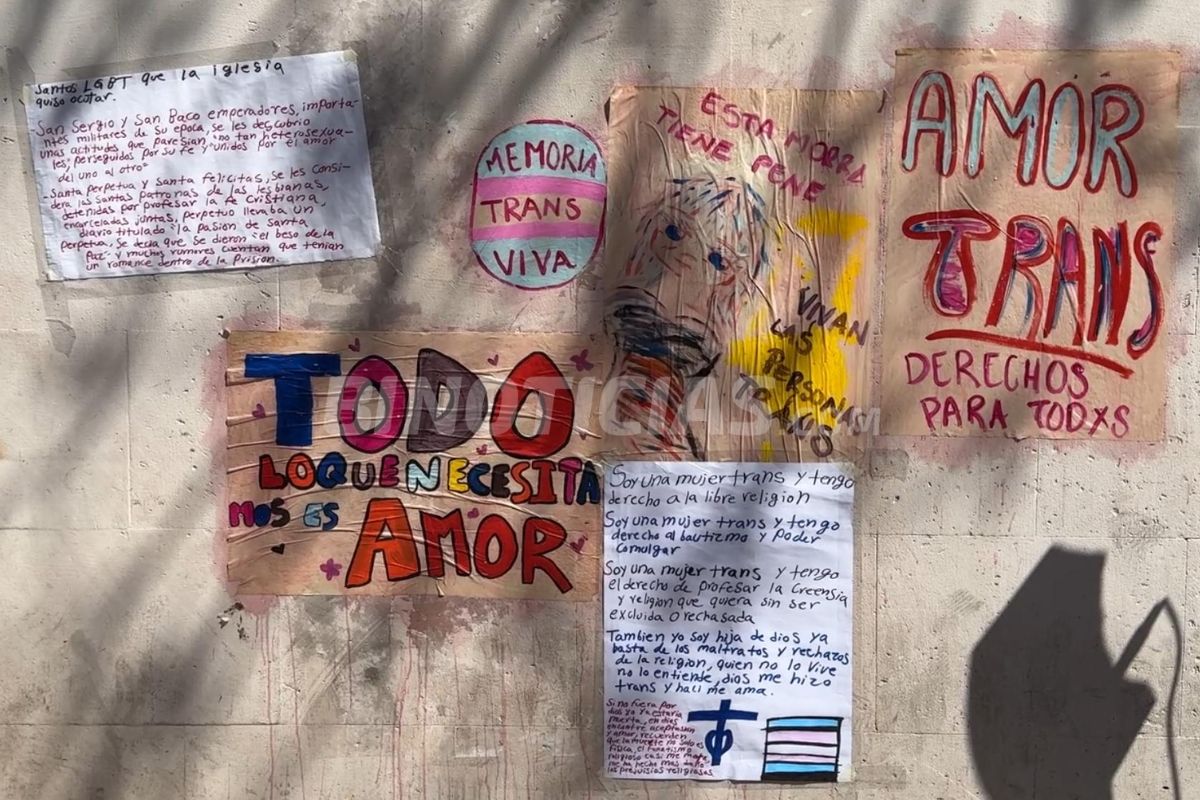 Santos LGBT que la iglesia
quiso ocutar.
-San Sergio y San Baco emperadores, importa-
ntes militares de su epoca, se les descubrio
unas actitudes que paresian "no tan heterosexua-
les" perseguidos por su fe y "unidos por el amor
del uno al otro"
-Santa perpetua y santa felicitas, se les consi-
dera las santas patronas de las lesbianas,
detenidas por profesar la fe Cristiana,
encarceladas juntas, perpetuo llevaba un
diario titulado "la pasion de santa
perpetua, se decia que se dieron "el beso de la
Paz" y muchos rumores cuentan que tenian
un romance dentro de la prision.
MEMORIA
TRANS
VIVA
ESTA MORRA
TIENE PENE
VIVAN
LAS
PERSONAS
TRANS
AMOR
TRANS
DERECHOS
PARA TODXS
TODO
LO QUE NECESITA
MOS ES
AMOR
NOTICIAS
Soy una mujer trans y tengo
derecho a la libre religion
Soy una mujer trans y tengo
derecho al bautizmo y poder
comulgar
Soy una mujer trans y tengo
el derecho de profesar la Creensia
y religion que quiera sin ser
excluida o rechasada
Tambien yo soy hija de dios ya
basta de los maltratos y rechazos
de la religion, quien no lo vive
no lo entiende, dios me hizo
trans y haci me ama.
Si no fuera por
dios yo ya estaria
muerta, en dios
encontre aceptasion
y amor, recuerden
que la muerte no solo es
fisica, el fanatismo
religioso casi me mata
me ha hecho mas daño
los prejuisios religiosos